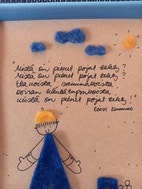 Mistä on pienet pojat tehty?
Mistä on pienet pojat tehty?
sammakoista
koiran häntätupsuista
niistä on pienet pojat tehty!